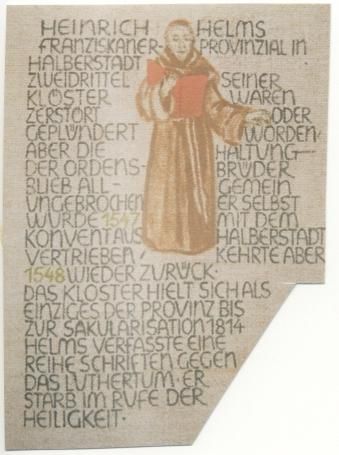 HEINRICH HELMS
FRANZISKANER- PROVINZIAL IN
HALBERSTADT
ZWEIDRITTEL SEINER
KLÖSTER WAREN
ZERSTÖRT ODER
GEPLÜNDERT WORDEN,
ABER DIE HALTUNG
DER ORDENS- BRÜDER
BLIEB ALL- GEMEIN
UNGEBROCHEN ER SELBST
WURDE 1547 MIT DEM
KONVENT AUS HALBERSTADT
VERTRIEBEN, KEHRTE ABER
1548 WIEDER ZURÜCK.
DAS KLOSTER HIELT SICH ALS
EINZIGES DER PROVINZ BIS
ZUR SÄKULARISATION 1814
HELMS VERFASSTE EINE
REIHE SCHRIFTEN GEGEN
DAS LUTHERTUM. ER
STARB IM RUFE DER
HEILIGKEIT.